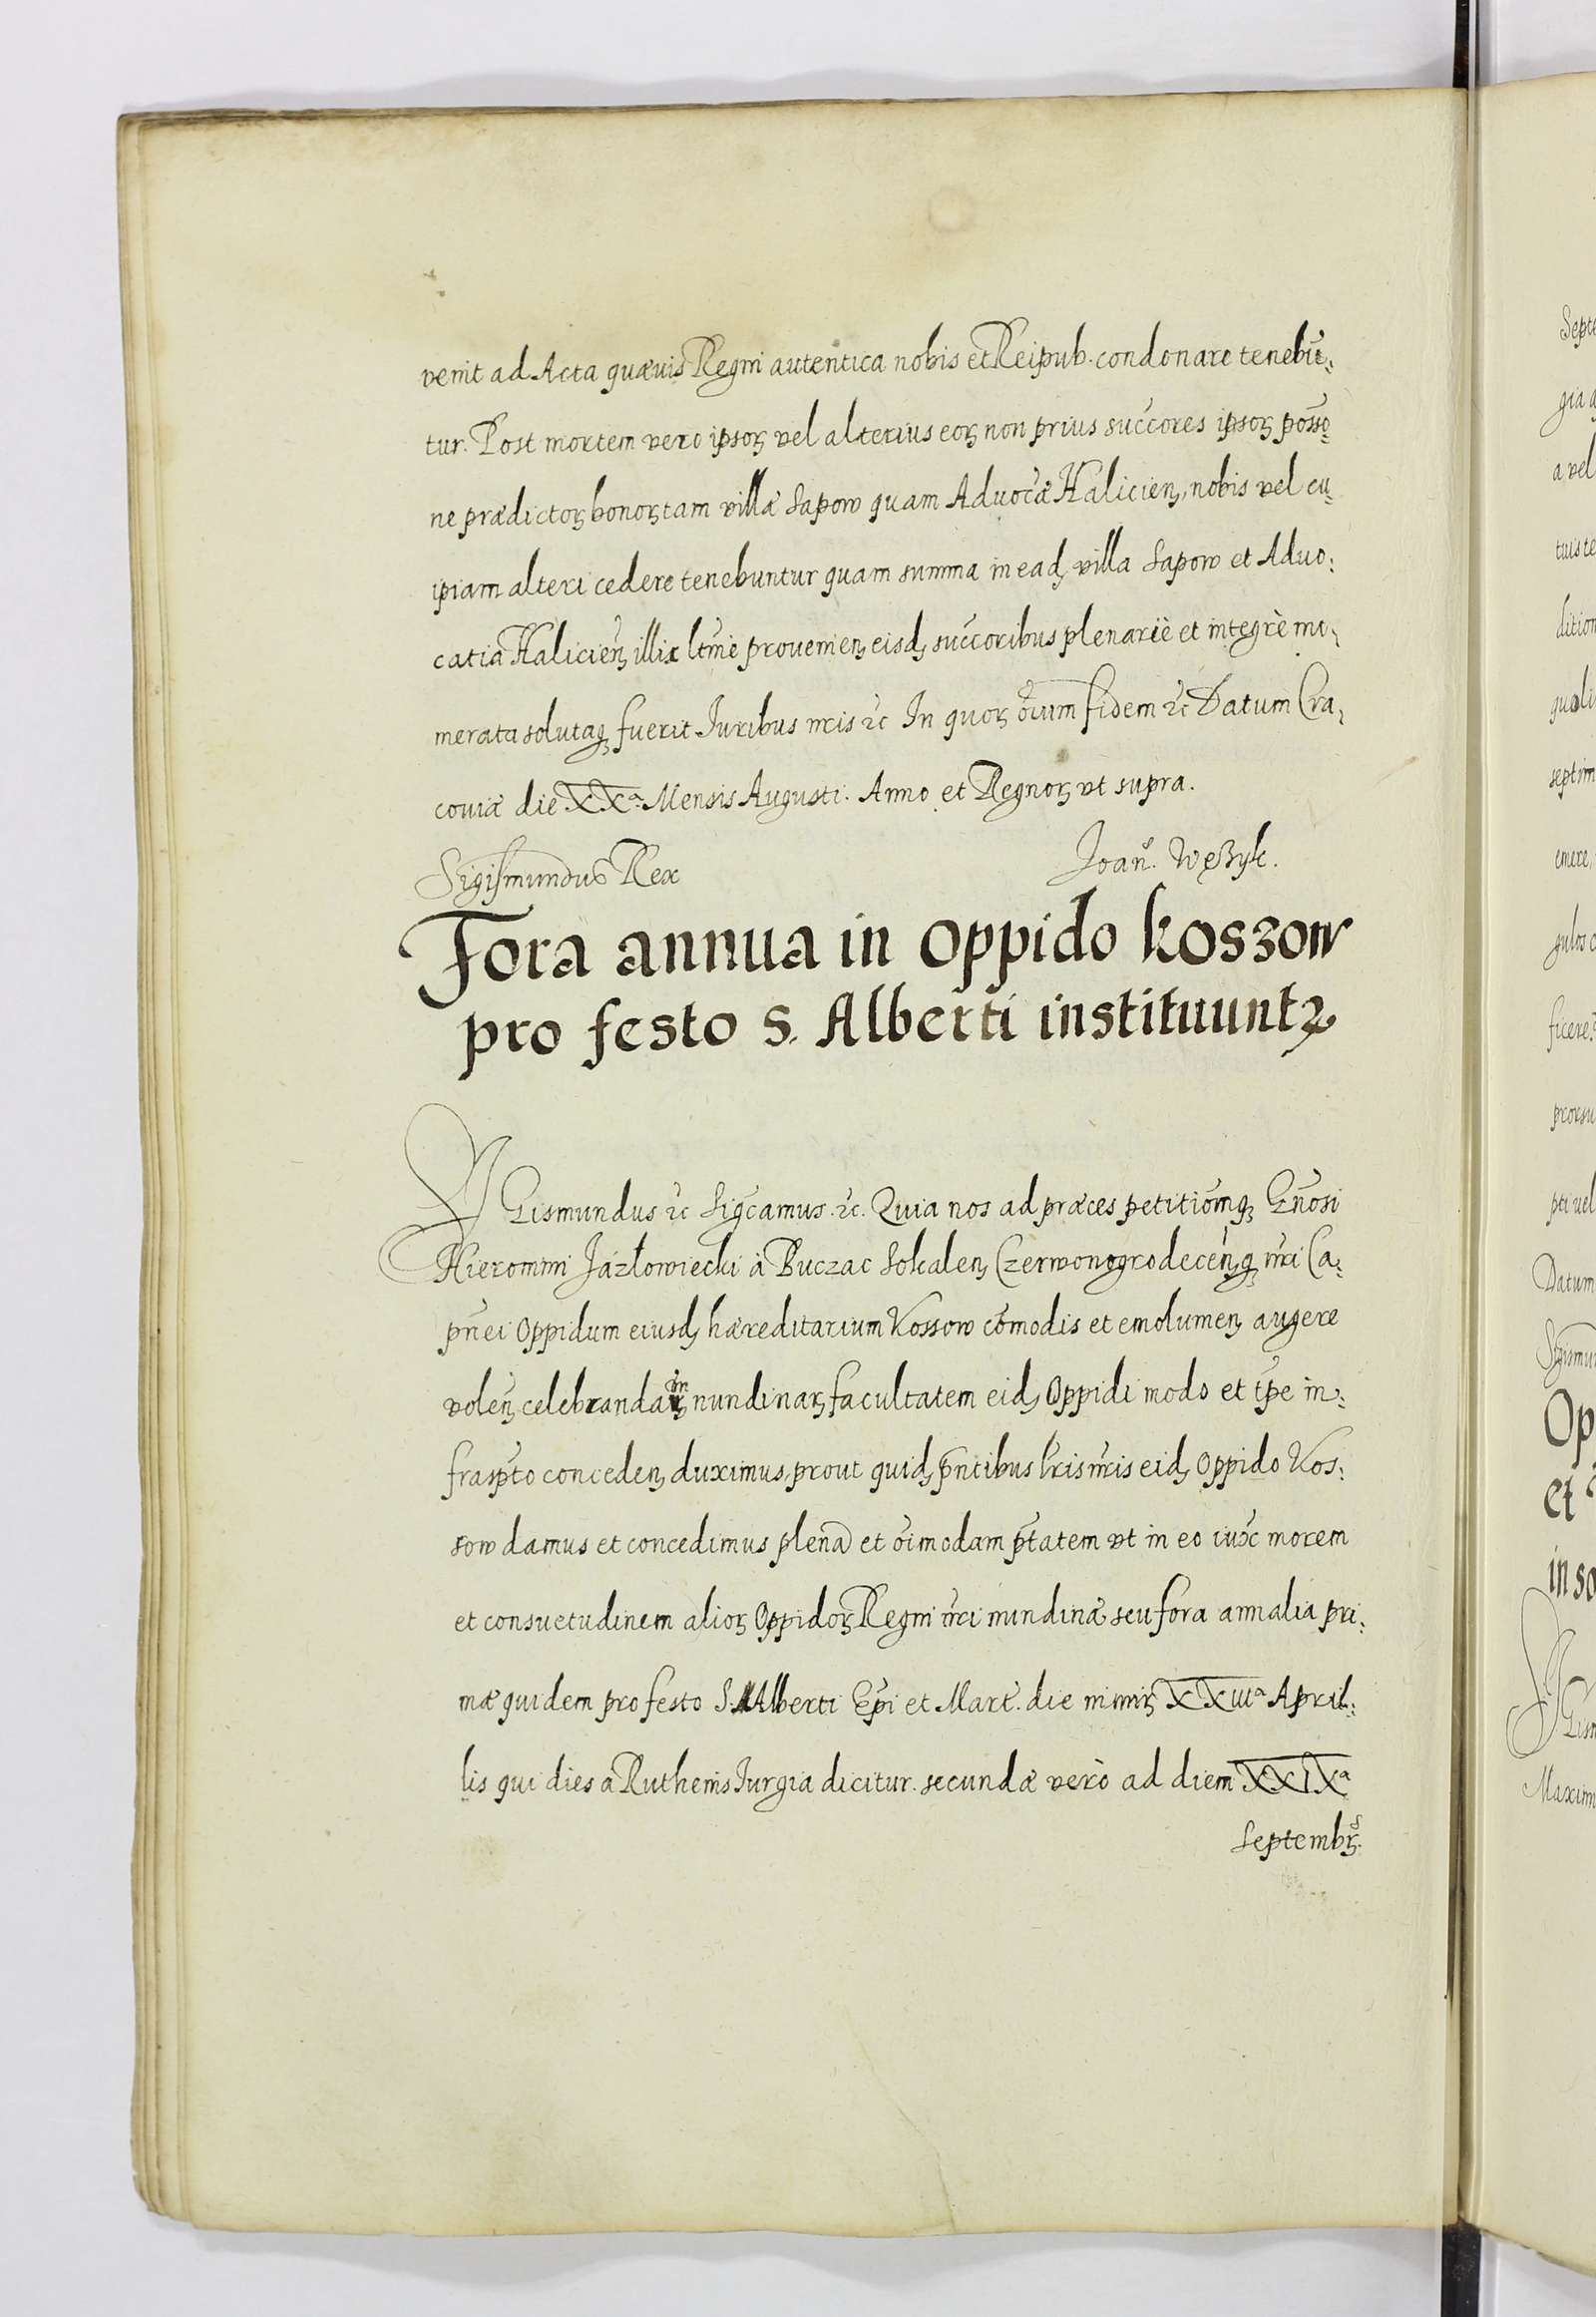 venit ad Acta quævis Regni autentica nobis et Reipub. condonare tenebũ-
tur. Post mortem vero ipsoꝝ vel alterius eoꝝ non prius succ̃ores ipsoꝝ põsso-
ne prædictoꝝ bonoꝝ tam villæ Sapow quam Aduoc̃æ Halicieñ, nobis vel cu-
ipiam alteri cedere tenebuntur quam summa in ead, villa Sapow et Aduo:
catia Halicieñ, illis ltm̃e prouenieñ, eisd, succ̃oribus plenariè et integrè nu-
merata solutaq, fuerit Juribus nr̃is ꝛc̃ In quoꝝ õium fidem ꝛc̃ Datum Cra-
couiæ die XXª Mensis Augusti. Anno et Regnoꝝ vt supra.
Sigismundus Rex Joañ. Wężyk.
Fora annua in oppido Koszow
pro festo S. Alberti instituuntꝛ
SIGismundus ꝛc̃ Sigc̃amus. ꝛc̃. Quia nos ad præces petitiõmq, Gñosi
Hieronimi Jázłowiecki à Buczac Sokaleñ, Czerwonogrodeceñ,q, nr̃i Ca-
pñei Oppidum eiusd, hæreditarium Kossow cõmodis et emolumeñ, augere
voleñ, celebrandaꝝm nundinaꝝ facultatem eid, Oppidi modo et tp̃e in-
frasp̃to concedeñ, duximus, prout quid, p̃ntibus lr̃is nr̃is eid, Oppido Kos:
sow damus et concedimus plenã et õimodam p̃tatem vt in eo iux̃ morem
et consuetudinem alioꝝ Oppidoꝝ Regni nr̃i nundinæ seu fora annalia pri-
mæ quidem pro festo S. Alberti Ep̃i et Mart̃. die nimiꝝ XXiiiª April-
lis qui dies a Ruthenis Jurgia dicitur. secundæ verò ad diem XXIXª
Septembꝝ.